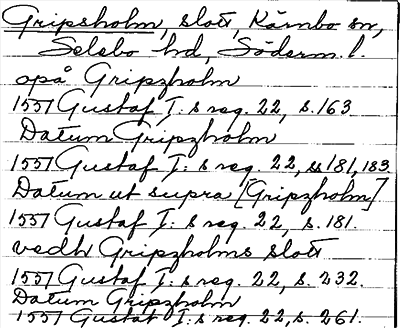 Gripsholm, slott, Kärnbo sn,
Selebo hd, Söderm. l.
opå Gripzholm
1557 Gustaf I: s reg. 22, s. 163
Datum Gripzholm
1557 Gustaf I: s reg. 22, ss 181, 183.
Datum ut supra [Gripzholm]
1557 Gustaf I: s reg. 22, s. 181.
vedh Gripzholms slott
1557 Gustaf I: s reg. 22, s. 232.
Datum Gripzholm
1557 Gustaf I: s reg. 22, s. 261.